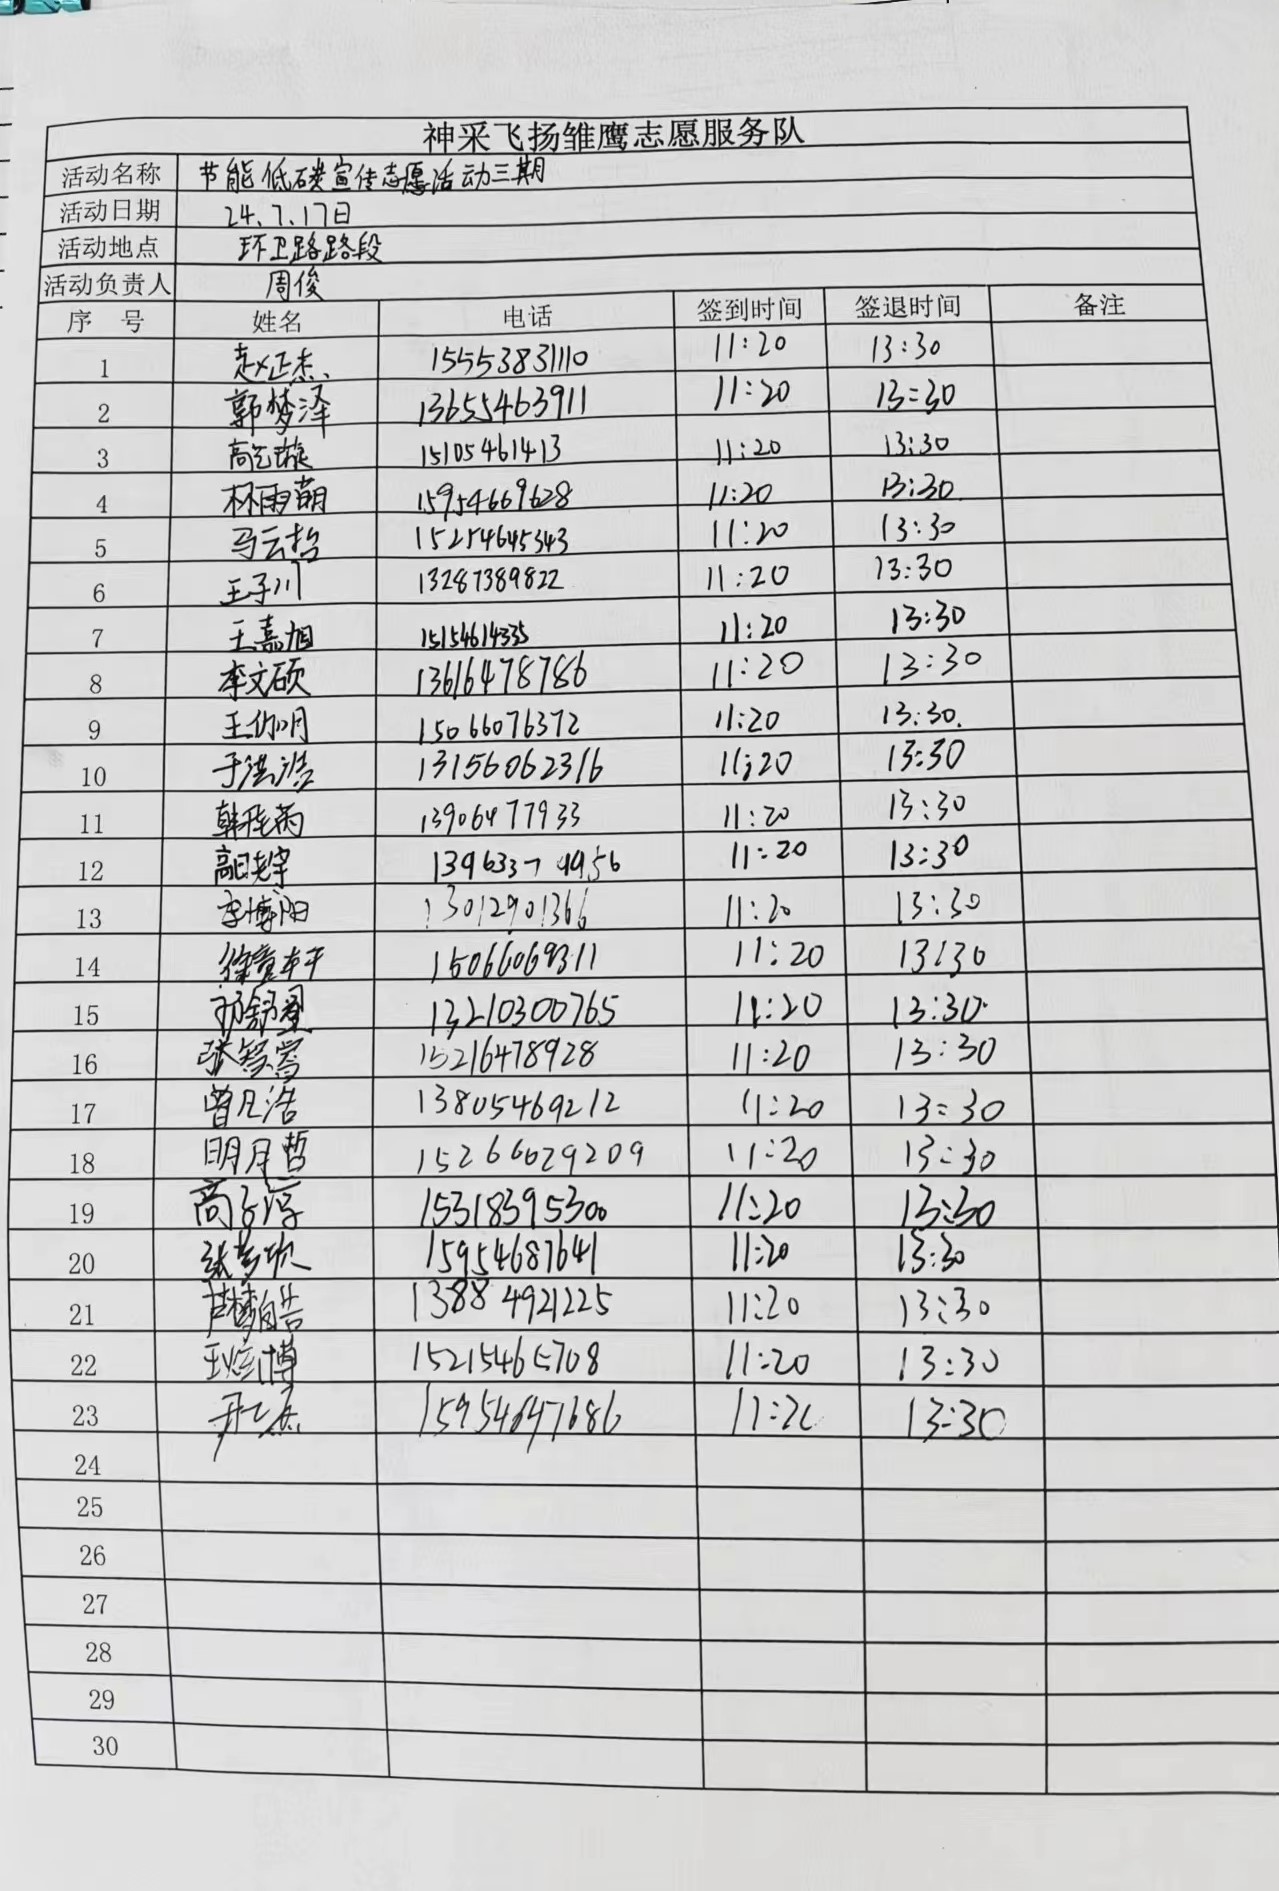 神采飞扬雏鹰志愿服务队
活动名称 节能低碳宣传志愿活动三期
活动日期 24.7.17日
活动地点 环卫路路段
活动负责人 周俊
序号 姓名 电话 签到时间 签退时间 备注
1 赵正杰 15553831110 11:20 13:30
2 郭梦泽 13655463911 11:20 13:30
3 15105461413 11:20 13:30
4 林雨萌 15954669628 11:20 13:30
5 马云哲 15254645343 11:20 13:30
6 王子川 13287389822 11:20 13:30
7 王嘉旭 15154614335 11:20 13:30
8 李文硕 13616478786 11:20 13:30
9 15066076372 11:20 13:30
10 于洪浩 13156062316 11:20 13:30
11 13906477933 11:20 13:30
12 11:20 13:30
13 李博阳 13012901366 11:20 13:30
14 徐童轩 15066069311 11:20 13:30
15 13210300765 11:20 13:30
16 15216478928 11:20 13:30
17 曾凡浩 13805469212 11:20 13:30
18 明月哲 15266029209 11:20 13:30
19 商子淳 15318395300 11:20 13:30
20 15954687641 11:20 13:30
21 13884921225 11:20 13:30
22 15215465708 11:20 13:30
23 11:20 13:30
24
25
26
27
28
29
30